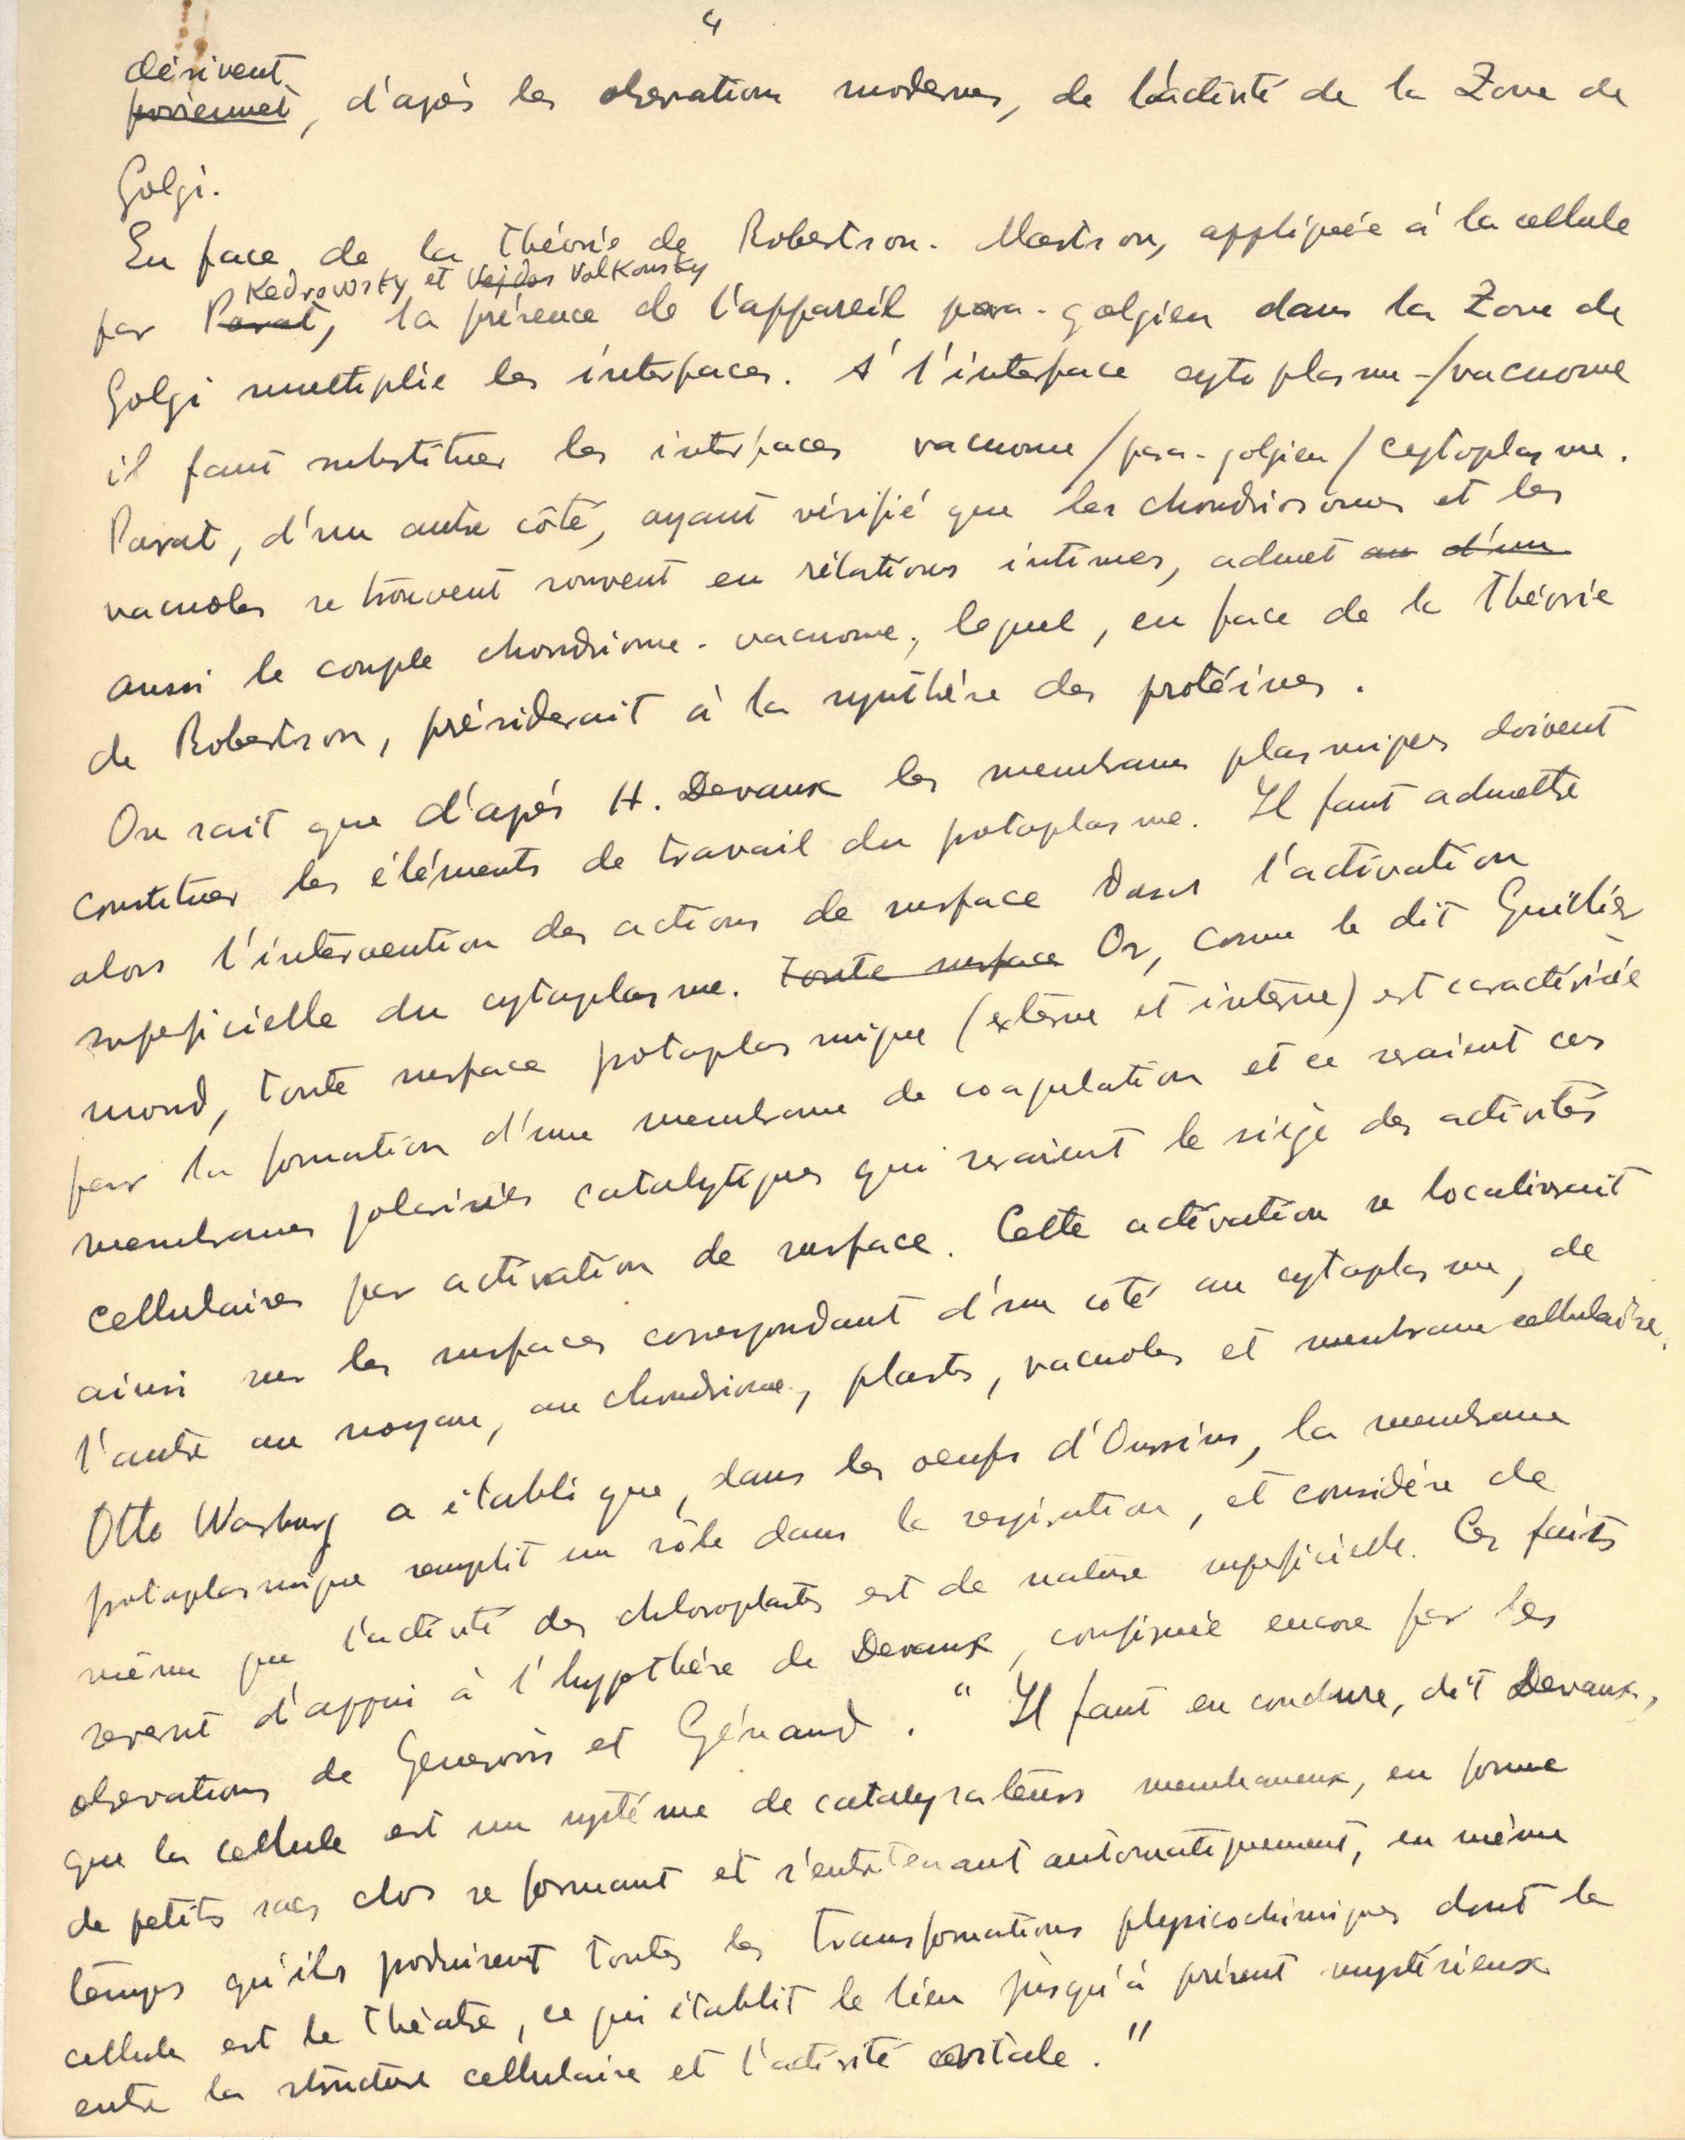 4
dérivent
proviennent, d'après les observations modernes, de l'activité de la Zone de
Golgi.
En face de la théorie de Robertson-Marston, appliquée à la cellule
Kedrowsky et Volkonsky
par Parat, la présence de l'appareil para-golgien dans la Zone de
Golgi multiplie les interfaces. A l'interface cytoplasme-/vacuome
il faut substituer les interfaces vacuome/para-golgien/cytoplasme.
Parat, d'un autre côté, ayant vérifié que les chondriosomes et les
vacuoles se trouvent souvent en rélations intimes, admet au d'un
aussi le couple chondriome-vacuome, lequel, en face de la théorie
de Robertson, présiderait à la synthèse des protéines.
On sait que d'après H. Devaux les membranes plasmiques doivent
constituer les éléments de travail du protoplasme. Il faut admettre
alors l'intervention des actions de surface dans l'activation
superficielle du cytoplasme. Toute surface Or, comme le dit Guillier
mond, toute surface protoplasmique (externe et interne) est caractérisée
par la formation d'une membrane de coagulation et ce seraient ces
membranes polarisées catalytiques qui seraient le siège des activités
cellulaires par activation de surface. Cette activation se localiserait
ainsi sur les surfaces correspondant d'un côté au cytoplasme, de
l'autre au noyau, au chondriome, plastes, vacuoles et membrane cellulaire.
Otto Warburg a établi que, dans les oeufs d'Oursins, la membrane
protoplasmique remplit un rôle dans la respiration, et considère de
même que l'activité des chloroplastes est de nature superficielle. Ces faits
servent d'appui à l'hypothèse de Devaux, confirmée encore par les
observations de Genevois et Génaud. "Il faut en conclure, dit Devaux,
que la cellule est un système de catalysateurs membraneux, en forme
de petits sacs clos se formant et s'entretenant automatiquement, en même
temps qu'ils produisent toutes les transformations physicochimiques dont la
cellule est le théatre, ce qui établit le lien jusqu'à présent mystérieux
entre la structure cellulaire et l'activité vitale."